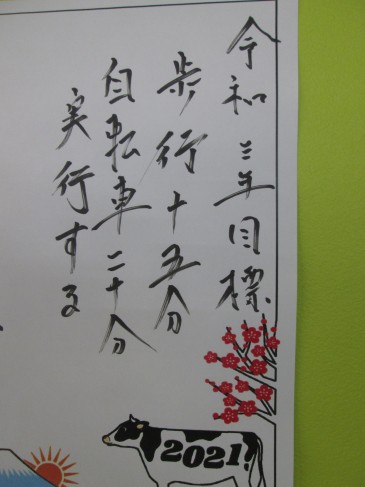 令和三年目標
歩行十五分
自転車二十分
実行する
2021